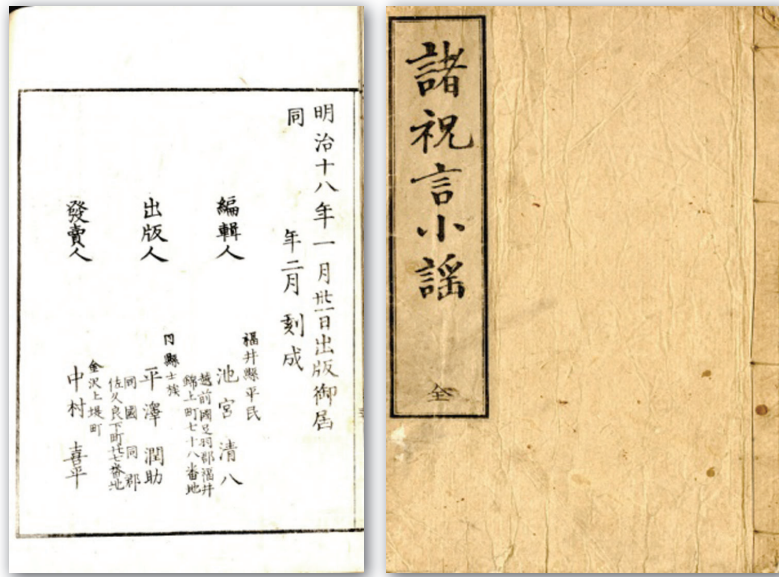 諸祝言小謡
全
明治十八年一月廿一日出版御届
同　年二月　刻成
編輯人
福井縣平民
池宮清八
越前國足羽郡福井
錦上町七十八番地
出版人
同縣士族
平澤潤助
同國同郡
佐久良下町廿七番地
發賣人
金沢上堤町
中村喜平